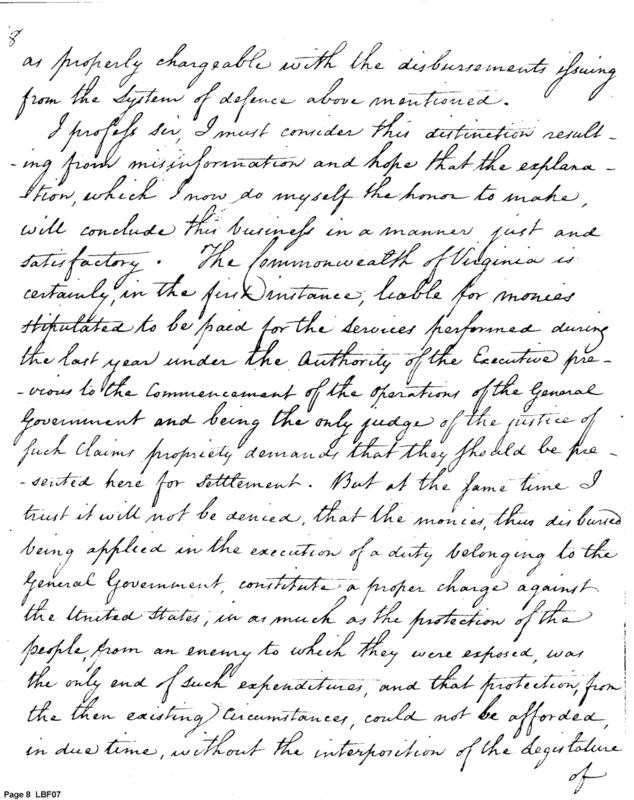 8
as properly chargeable with the disbursements issuing
from the System of defence above mentioned.
I profess sir, I must consider this distinction result-
-ing from misinformation and hope that the explana-
-tion, which I now do myself the honor to make,
will conclude this business in a manner just and
satisfactory. The Commonwealth of Virginia is
certainly, in the first instance, liable for monies
stipulated to be paid for the services performed during
the last year under the Authority of the Executive pre-
-vious to the Commencement of the operations of the General
Government and being the only judge of the justice of
such Claims propriety demands that they should be pre-
-sented here for settlement. But at the same time I
trust it will not be denied, that the monies, thus disbursed
being applied in the execution of a duty belonging to the
General Government, constitute a proper charge against
the United States, in as much as the protection of the
people, from an enemy to which they were exposed, was
the only end of such expenditures, and that protection, from
the then existing Circumstances, could not be afforded,
in due time, without the interposition of the Legislature
of
Page 8 LBF07